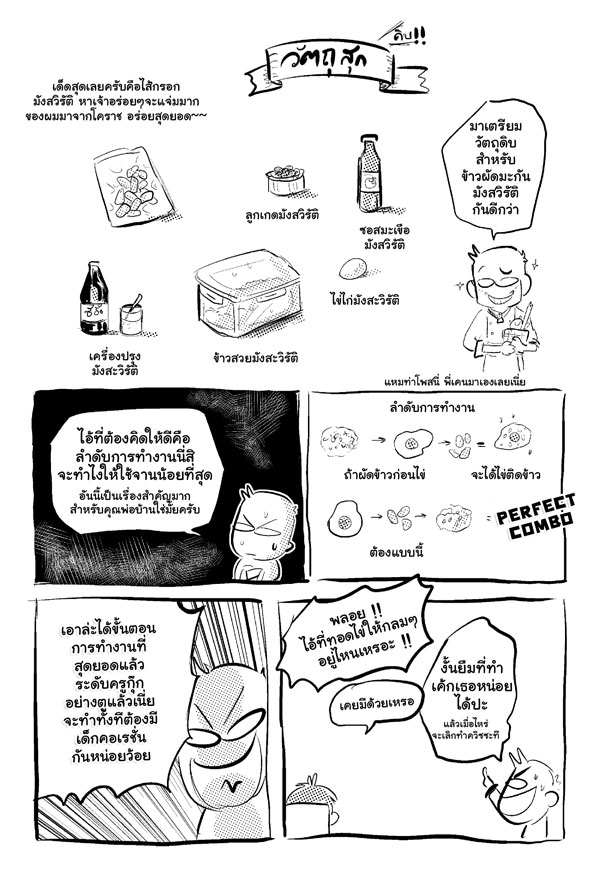 วัตถุสุก
ดิบ!!
เด็ดสุดเลยครับคือไส้กรอก
มังสวิรัติ หาเจ้าอร่อยๆจะแจ่มมาก
ของผมมาจากโคราช อร่อยสุดยอด~~
มาเตรียม
วัตถุดิบ
สำหรับ
ข้าวผัดมะกัน
มังสวิรัติ
กันดีกว่า
ลูกเกดมังสวิรัติ
ซอสมะเขือ
มังสวิรัติ
ไข่ไก่มังสะวิรัติ
เครื่องปรุง
มังสะวิรัติ
ข้าวสวยมังสะวิรัติ
แหมท่าโพสนี่ พี่เคนมาเองเลยเนี่ย
ไอ้ที่ต้องคิดให้ดีคือ
ลำดับการทำงานนี่สิ
จะทำไงให้ใช้จานน้อยที่สุด
อันนี้เป็นเรื่องสำคัญมาก
สำหรับคุณพ่อบ้านใช่มั้ยครับ
ลำดับการทำงาน
ถ้าผัดข้าวก่อนไข่
จะได้ไข่ติดข้าว
=
PERFECT
COMBO
ต้องแบบนี้
เอาล่ะได้ขั้นตอน
การทำงานที่
สุดยอดแล้ว
ระดับครูกุ๊ก
อย่างตูแล้วเนี่ย
จะทำทั้งทีต้องมี
เด็กคอเรชั่น
กันหน่อยว้อย
พลอย !!
ไอ้ที่ทอดไข่ให้กลมๆ
อยู่ไหนเหรอะ !!
เคยมีด้วยเหรอ
งั้นยืมที่ทำ
เค้กเธอหน่อย
ได้ปะ
แล้วเมื่อไหร่
จะเลิกทำควิชชะที